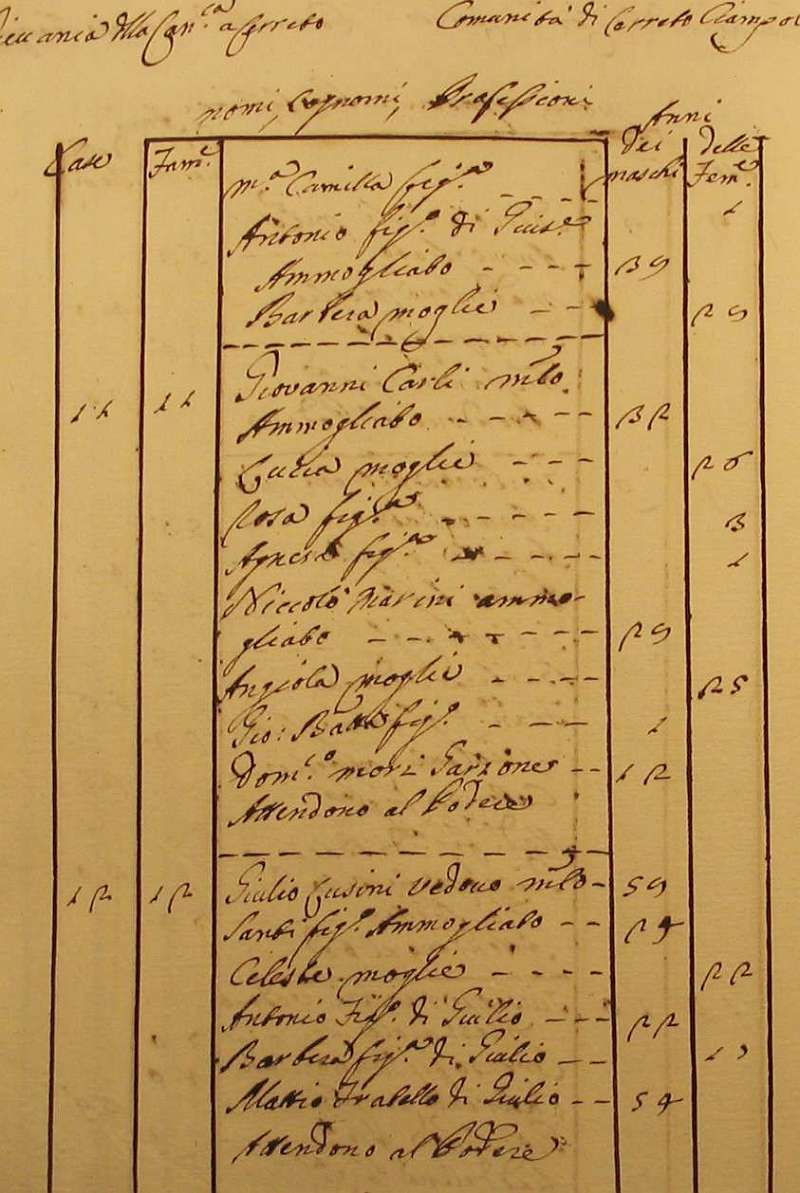 Comunità di Cerreto Ciampol
nomi, Cognomi, Professioni
Anni
Case Fam.e dei maschi delle Fem.e
m.a Camilla fig.a - - - - 1
Antonio fig.o di Gius.e
Ammogliato - - - - 39
Barbera moglie - - - 29
11 11 Giovanni Carli m͠to
Ammogliato - - - - - 32
Lucia moglie - - - 26
Rosa fig.a - - - - - - 3
Agnesa fig.a - - - - - 1
Niccolò Marini ammo-
gliato - - - - - - - 29
Angiola moglie - - - - 25
Gio: Batta fig.o - - - - 1
Dom.co mori Garzone - - 12
Attendono al Podere
12 12 Giulio Cusini vedovo m͠to - 59
Santi fig.o Ammogliato - - 24
Celeste moglie - - - - 22
Antonio Fig.o di Giulio - - - 22
Barbera fig.a di Giulio - - 19
Mattio Fratello di Giulio - - 54
Attendono al Podere